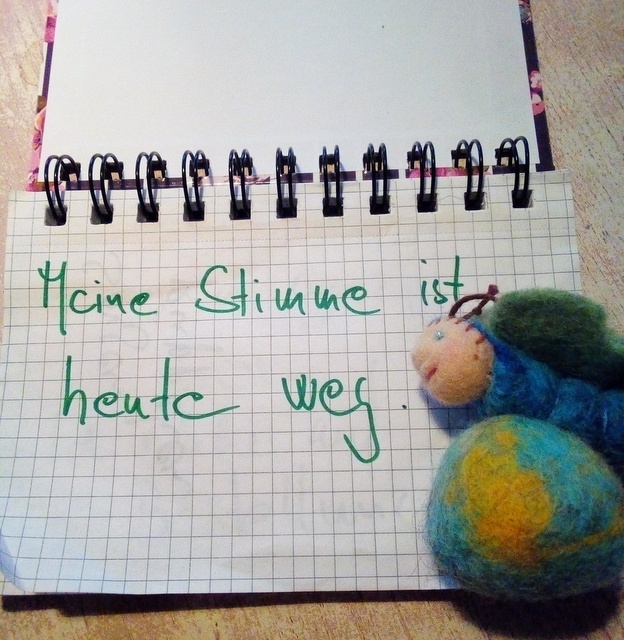 Meine Stimme ist
heute weg.